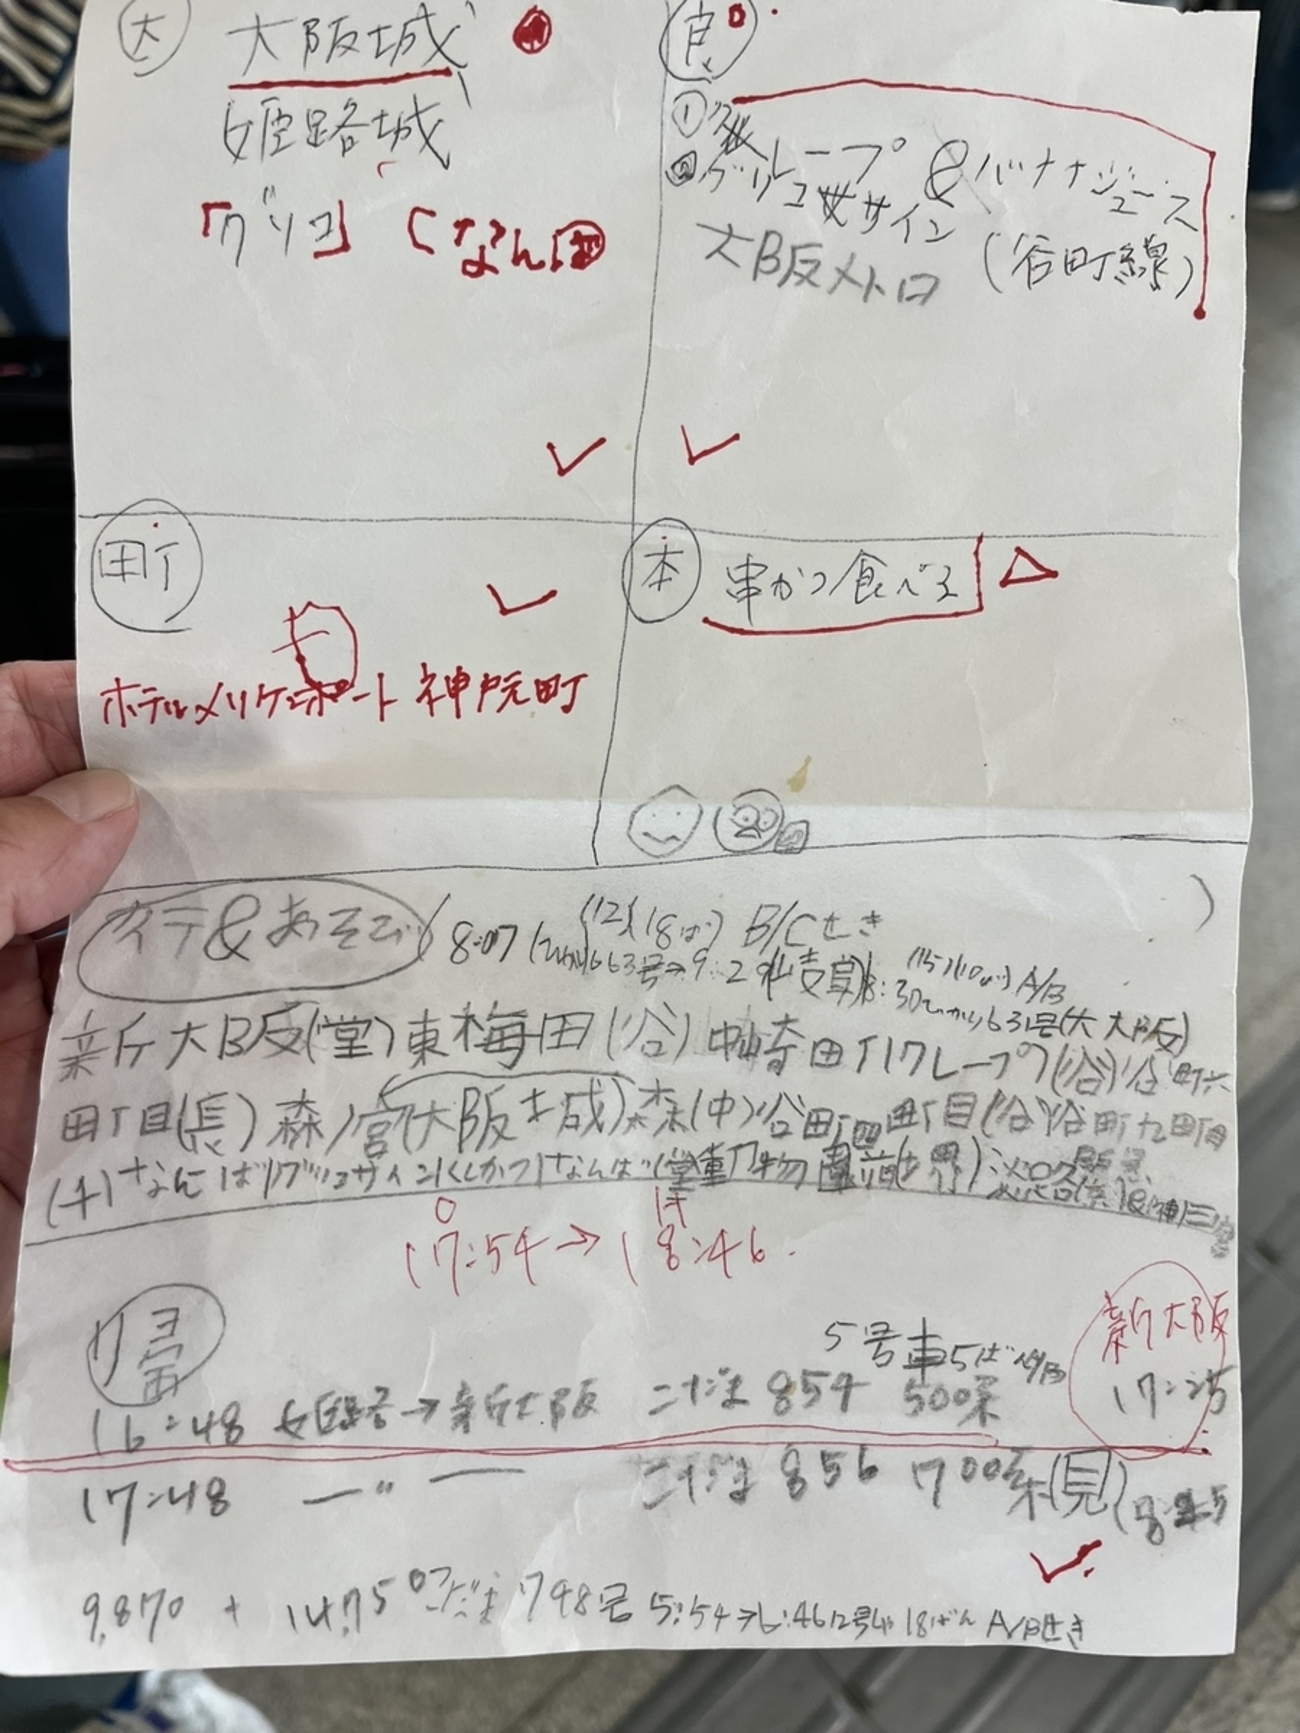 大
大阪城
姫路城
「グリコ」
良
①
クレープ&バナナジュース
②グリコサイン
大阪メトロ (谷町線)
町
ホテルメリケンポート 神戸元町
本
串かつ食べる
8:07 (ひかり663号→9:29
(12)(18ばん) B/Cせき
(15)(10ばん) A/B
8:30ひかり631号(大阪)
新大阪(堂)東梅田(谷)中崎町(クレープ)(谷)谷町六
町目(長)森ノ宮(大阪城)森(中)谷町四町目(谷)谷町九町目
(千)なんば(グリコサイン)(くしかつ)なんば(堂)動物園前(世界)
17:54→18:46
帰
5号車5ばんA/B
新大阪
17:25
16:48 姫路→新大阪 こだま 854 500系
17:48 〃 こだま 856 700系(見)
9,870 + 14,750 こだま 798号 5:54→6:46 12号車 18ばん A/Bせき